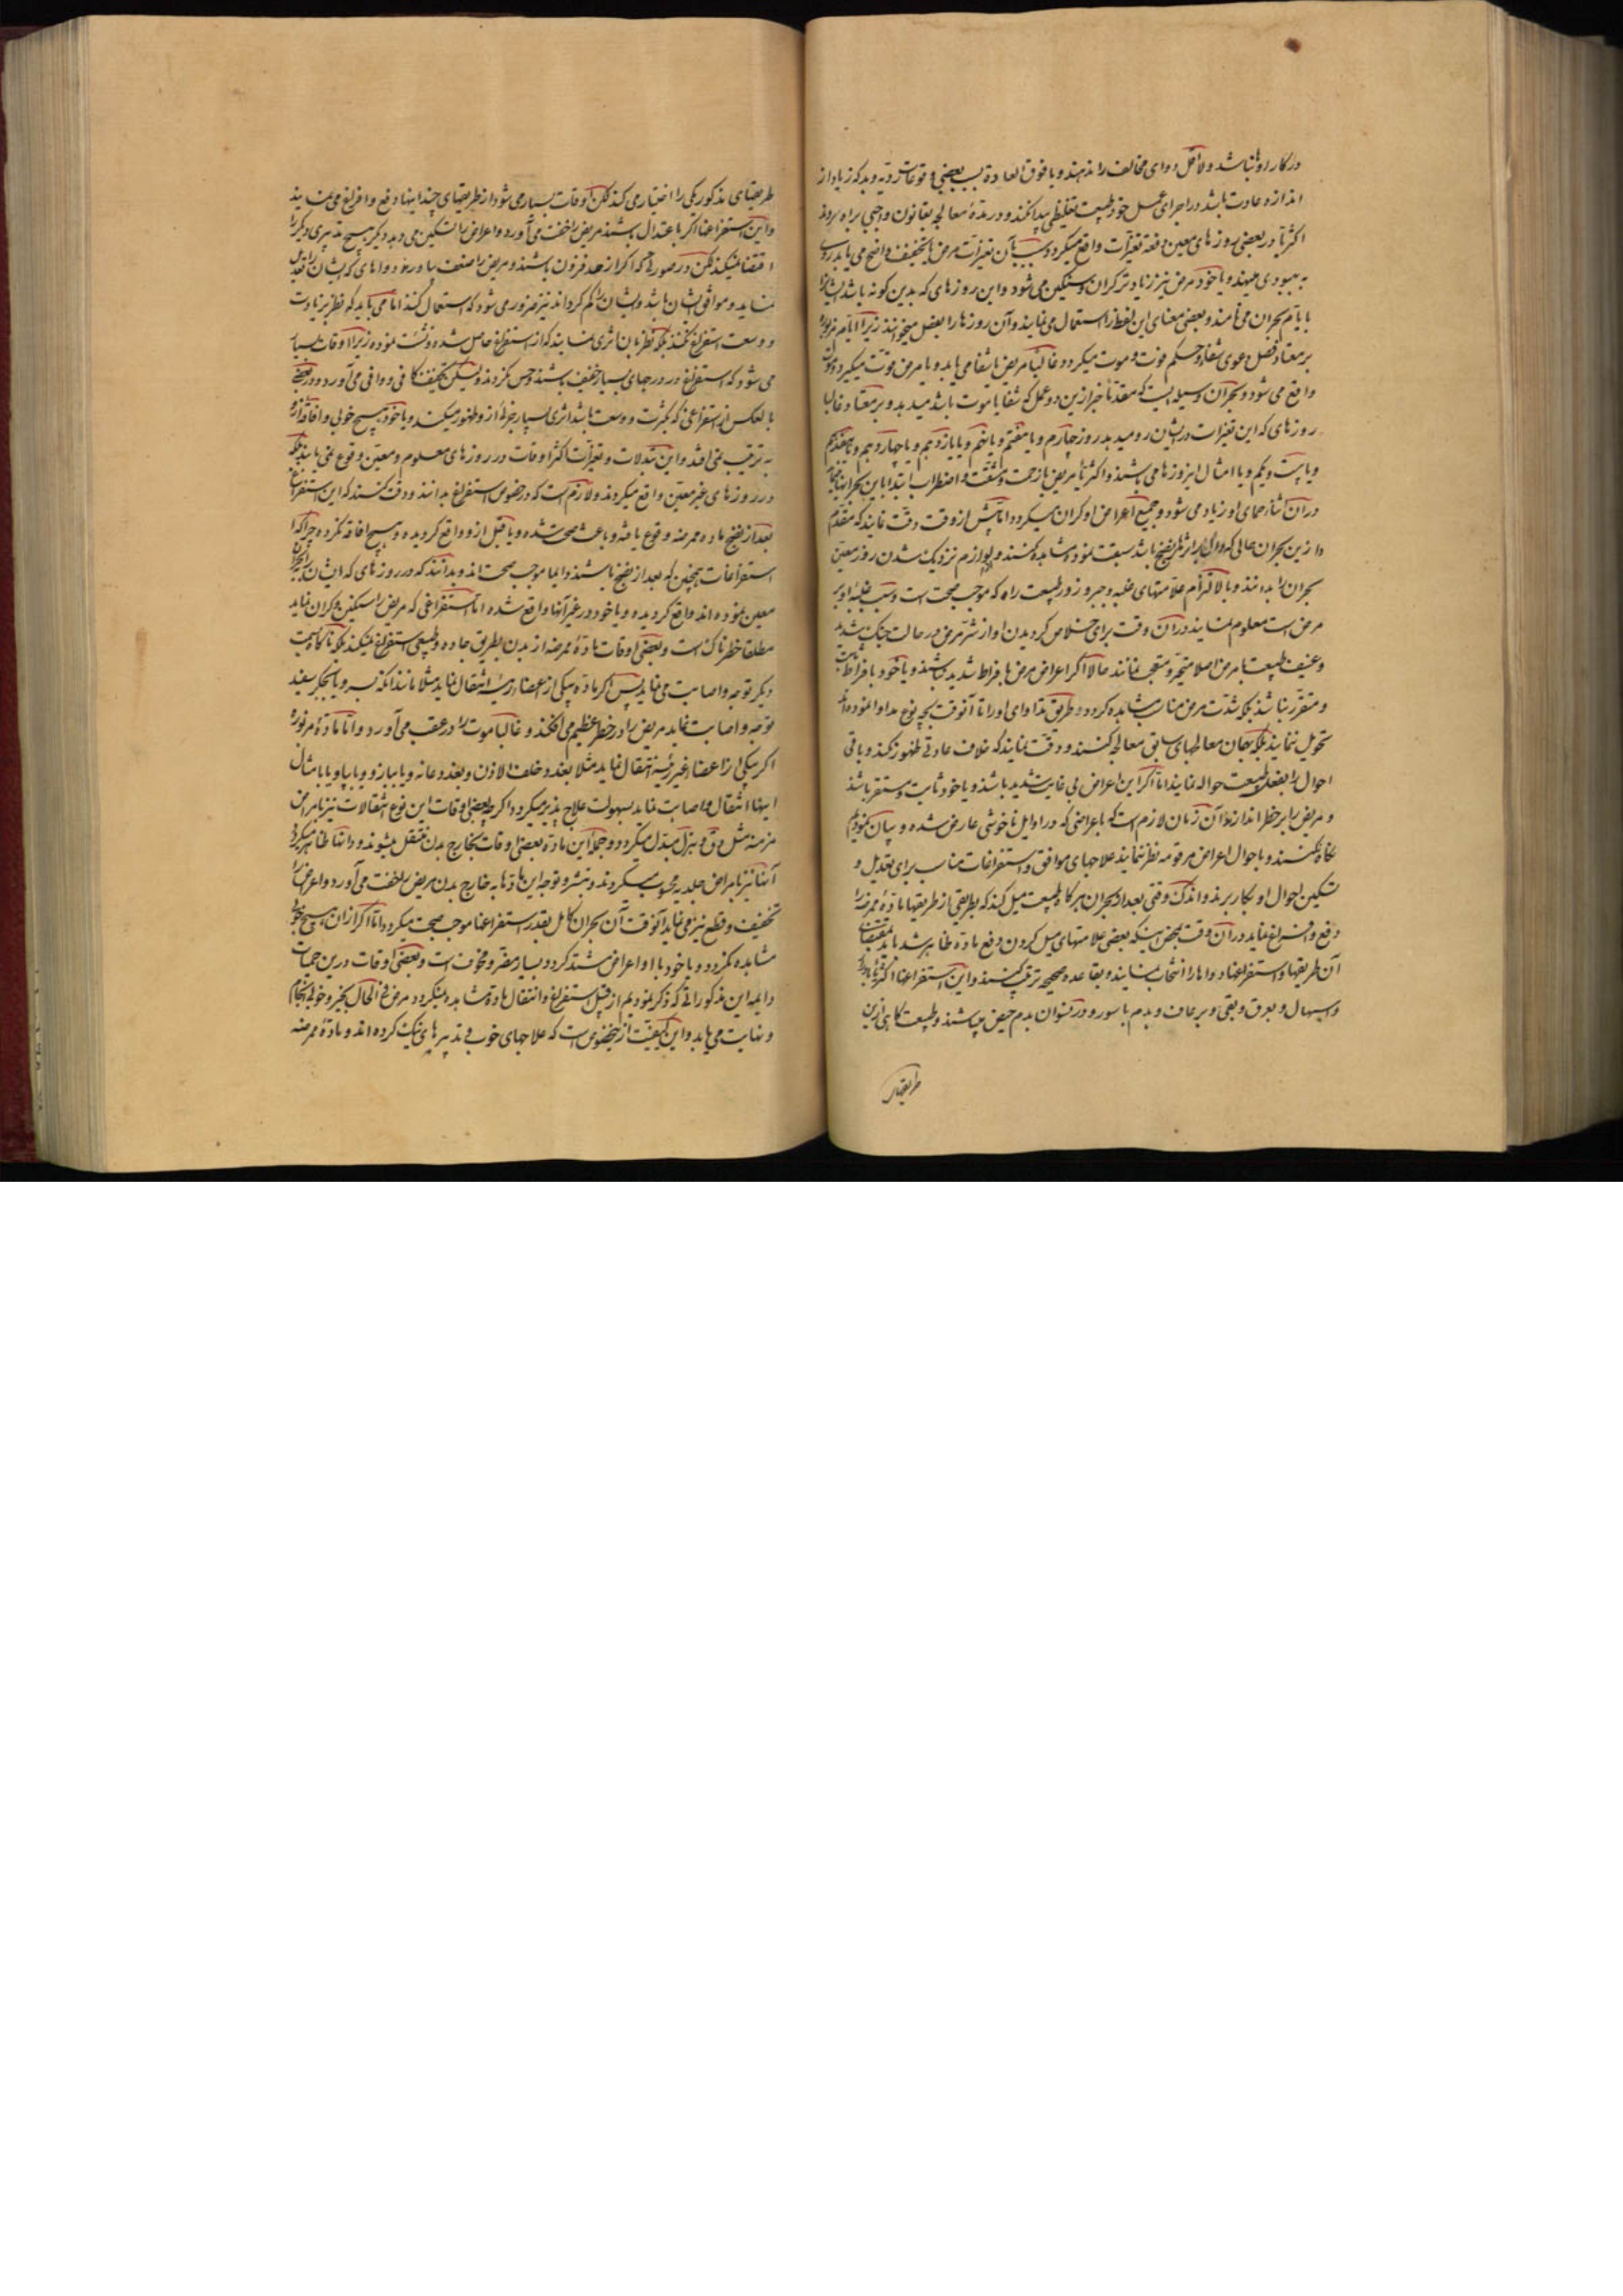 در کار او نباشد ولا اقل دوای مخالف را ندهند و یا فوق العادة بسبب بعضی وقوعات ردیه و بدکه زیاد از
اندازه عادت باشد در اجرای عمل خود طبیعت تغلیظی پیدا کند و در مدّة معالجه بقانون واجبی براه نرود
اکثریا در بعضی روزهای معین دفعة تغیّرات واقع میگردد و بسبب آن تغیرات مرض یا تخفیف واضح می یابد و روی
به بهبودی مینهد و یا خود مرض نیز زیادتر گران و سنگین می شود و این روزهای که بدین کونه باشد ایشانرا
بایّام بحران می نامند و بعضی معنای این لفظ را استعمال می نمایند و آن روزها را بفصل میخوانند زیرا ایّام مزبوره
بر معتاد فصل دعوی شفا و حکم فوت و موت میگردد و غالبًا مریض یا شفا می یابد و یا مرض موّت میگیرد و موت
واقع می شود و بحران وسیله ایست که مقدّما خبر ازین دو عمل که شفا یا موت باشد میدهد و بر معتاد غالبا
روزهای که این تغیرات در ایشان رو میدهد روز چهارم و یا هفتم و یا نهم و یا یازدهم و یا چهاردهم و یا هفدهم
و یا بیست و یکم و یا امثال این روزها می باشند و اکثریا مریض با زحمت و مشقّت و اضطراب ابتدا باین بحرانها
در آن اثنا حمای او زیاد می شود و جمیع اعراض او گران میگردد اما پیش از وقت دقّت نمایند که مقدّم
از این بحران حالی که دال بر اثرهای نضج باشد سبقت نموده مشاهده کنند و لوازم نزدیک شدن روز معیّن
بحران را بدانند و بالالتزام علامتهای غلبه و جبر و زور طبیعت را که موجب صحت است و سبب غلبه او بر
مرض است معلوم نمایند در آن وقت برای خلاص گردیدن او از شرّ مرض در حالت جنک شدید
و عنیف طبیعت با مرض اصلا متحیّر و متعجب نمانند حالا اگر اعراض مرض با فراط شدید نباشند و یا خود با فراط ثابت
و متقرّر نباشد بلکه شدّت مرض مناسب مشاهده گردد طریق تداوای او را تا آنوقت بچه نوع مداوا نموده اند
تحویل ننمایند بلکه بهمان معالجهای سابق معالجه کنند و دقّت نمایند که خلاف عادتی ظهور نکند و باقی
احوال را بفعل طبیعت حواله نمایند امّا اگر این اعراض بی غایت شدید باشند و یا خود ثابت و مستقر باشند
و مریض را بر خطر اندازد آن زمان لازم است که باعراضی که در اوایل ناخوشی عارض شده و بیان نمودیم
نگاه کنند و باحوال اعراض مرقومه نظر نمایند علاجهای موافق و استفراغات مناسب برای تعدیل و
تسکین احوال او بکار برند و اندک وقتی بعد از بحران هرگاه طبیعت میل کند که بطریقی از طریقها مادّهٔ ممرضه را
دفع و افراغ نماید در آن وقت بمحض اینکه بعضی علامتهای میل کردن و دفع مادّه ظاهر شد باید بمقتضای
آن طریقها و استفراغها دواها را انتخاب نمایند و بقاعده صحیحه ترتیب کنند و این استفراغها اکثریا به بول
و اسهال و بعرق و بقی و برعاف و بدم باسور و در نسوان بدم حیض میباشند و طبیعت گاهی ازین
طریقهای
طریقهای مذکور یکی را اختیار می کند لکن اوقات بسیار می شود از طریقهای چند اینها دفع و افراغ می نماید
و این استفراغها اگر باعتدال باشند مریض را خفت می آورد و اعراض را تسکین می دهد و دیگر هیچ تدبیری دیگر را
اقتضا نمیکند لکن در صورتی که اگر از حد فزون باشند و مریض را ضعف بیاورند دواهای که ایشان را تعدیل
نماید و موافق ایشان باشد و ایشان را کم گرداند نیز ضروری می شود که استعمال کنند اما می باید که نظر بزیادت
و وسعت استفراغ نکنند بلکه نظر بآن اثری نمایند که از استفراغ حاصل شده و نشئت نموده زیرا اوقات بسیار
می شود که استفراغ در درجهای بسیار خفیف باشند و حس نگردند ولیکن تخفیف کافی و وافی می آورد و در بعضی
بالعکس از استفراغی که بکثرت و وسعت باشد اثری بسیار جزئی از او ظهور میکند و یا خود هیچ خوبی و افاقه از او
به ترتیب نمی افتد و این تبدلات و تغیّرات اکثر اوقات در روزهای معلوم و معین وقوع نمی یابند بلکه
در روزهای غیر معیّن واقع میگردند و لازم است که در خصوص استفراغ بدانند و دقت کنند که این استفراغات
بعد از نضج ماده ممرضه وقوع یافته و باعث صحت شده و یا قبل از او واقع گردیده و هیچ افاقه نکرده چرا که
استفراغات همچنین که بعد از نضج باشند دایما موجب صحت اند و بدانند که در روزهای که ایشان را بحران
معین نموده اند واقع گردیده و یا خود در غیر آنها واقع شده اما استفراغی که مریض را سنگین و گران نماید
مطلقا خطرناک است و بعضی اوقات مادّهٔ ممرضه از بدن بطریق جاده و طبیعی استفراغ نمیکند بلکه ناگاه بسمت
دیگر توجه و اصابت می نماید پس اگر مادّه بیکی از اعضاء رئیسه انتقال نماید مثلا مانند آنکه بسر و یا بجگر سفید
توجه و اصابت نماید مریض را در خطر عظیم می افکند و غالبا موت را در عقب می آورد و امّا مادّهٔ مزبوره
اگر بیکی از اعضاء غیر رئیسه انتقال نماید مثلا بغدد خلف الاذن و بغدد عانه و یا ببازو و یا بپا و یا بامثال
اینها انتقال و اصابت نماید بسهولت علاج پذیر میگردد اگر چه بعضی اوقات این نوع انتقالات نیز بامراض
مزمنه مثل دق و هزل مبدّل میگردد و جمله این مادّه بعضی اوقات بخارج بدن منتقل میشوند و در آنها ظاهر میگردد
آنها نیز بامراض جلدیه محسوب میگردند و نشر و توجه این مادّها به خارج بدن مریض را خفت می آورد و اعراض را
تخفیف و قطع نیز می نماید آنوقت آن بحران کامل بقدر استفراغها موجب صحت میگردد امّا اگر از آن هیچ خوبی
مشاهده نگردد و یا خود با او اعراض مشتد گردد بسیار مضر و مخوف است و بعضی اوقات درین حمیات
دایمه این مذکوراتی که ذکر نمودیم از قبیل استفراغ و انتقال مادّه مشاهده نمیگردد مرض فی الحال بخیر و خوبی انجام
و نهایت می یابد و این کیفیّت از خصوص است که علاجهای خوب و تدبیرهای نیک کرده اند و مادّهٔ ممرضه